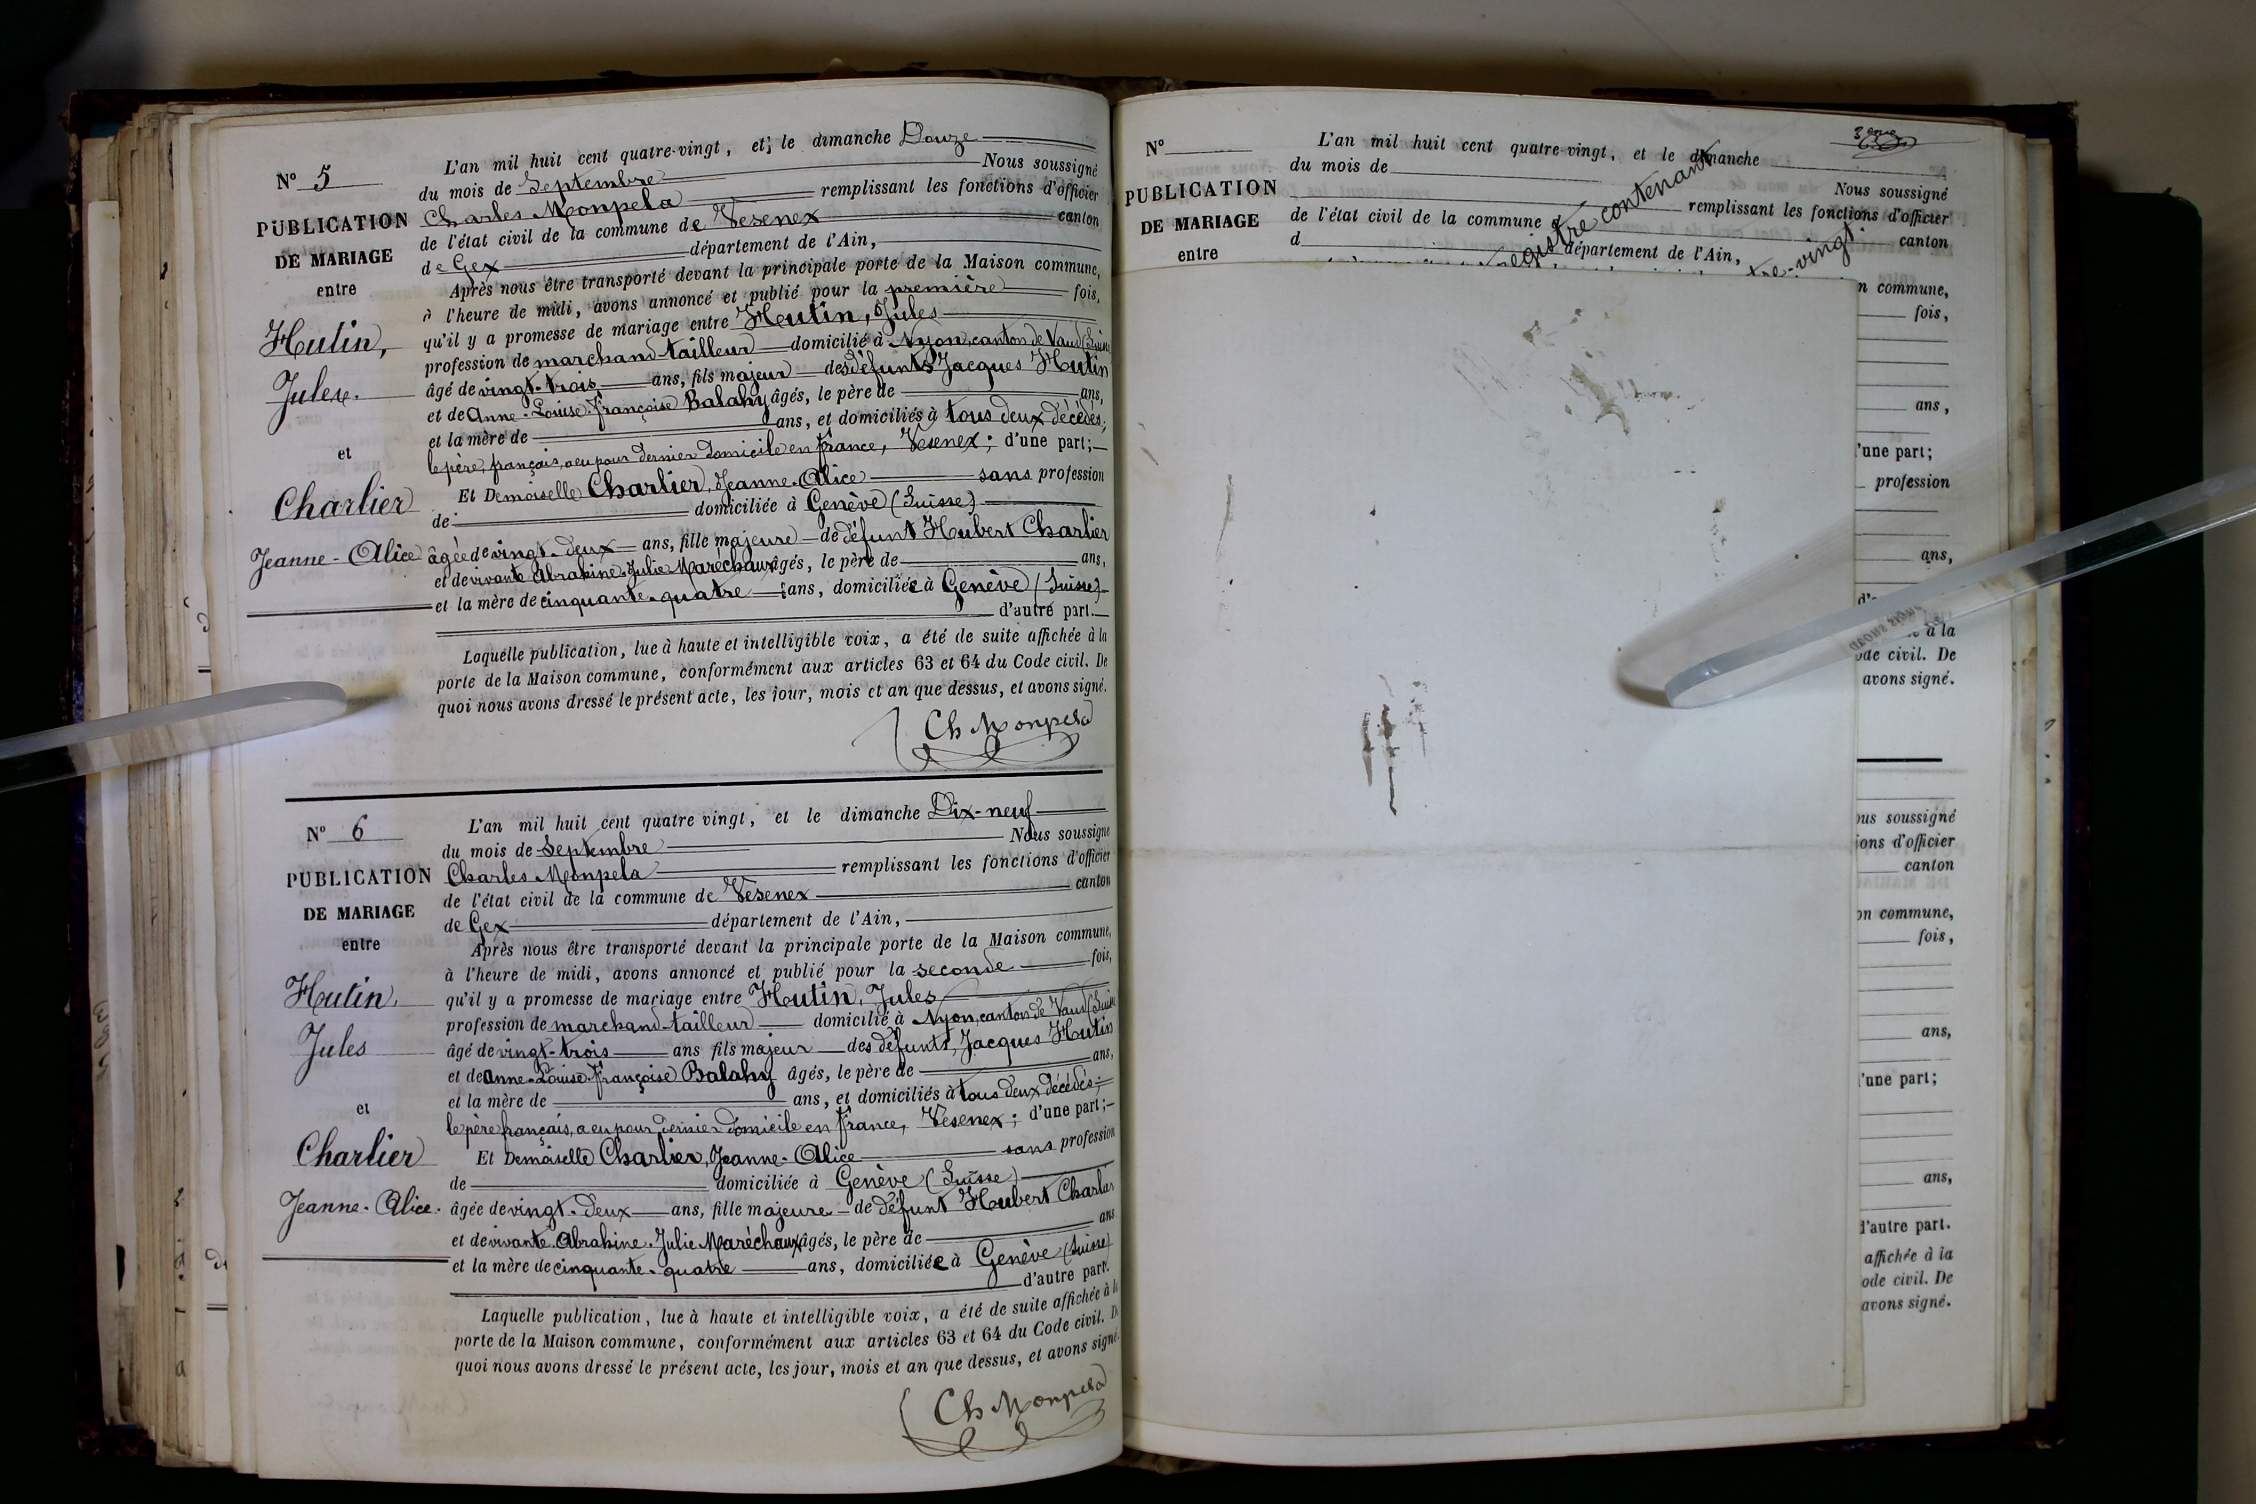 N° 5
PUBLICATION
DE MARIAGE
entre
Hutin,
Jules.
et
Charlier
Jeanne-Alice
L'an mil huit cent quatre-vingt, et le dimanche Douze
du mois de Septembre Nous soussigné
Charles Monpela remplissant les fonctions d'officier
de l'état civil de la commune de Vesenex canton
de Gex département de l'Ain,
Après nous être transporté devant la principale porte de la Maison commune,
à l'heure de midi, avons annoncé et publié pour la première fois,
qu'il y a promesse de mariage entre Hutin, Jules
profession de marchand-tailleur domicilié à Nyon, canton de Vaud (Suisse
âgé de vingt-trois ans, fils majeur des défunts Jacques Hutin
et de Anne-Louise-Françoise Balahy âgés, le père de ans,
et la mère de ans, et domiciliés à tous deux décédés;
le père, français, a eu pour dernier domicile en france, Vesenex; d'une part;
Et Demoiselle Charlier, Jeanne-Alice sans profession
de domiciliée à Genève (Suisse)
âgée de vingt-deux ans, fille majeure de défunt Hubert Charlier
et de vivante Abrahine-Julie Maréchaux âgés, le père de ans,
et la mère de cinquante-quatre ans, domiciliée à Genève (Suisse)
d'autre part.
Laquelle publication, lue à haute et intelligible voix, a été de suite affichée à la
porte de la Maison commune, conformément aux articles 63 et 64 du Code civil. De
quoi nous avons dressé le présent acte, les jour, mois et an que dessus, et avons signé.
Ch Monpela
N° 6
PUBLICATION
DE MARIAGE
entre
Hutin,
Jules
et
Charlier
Jeanne-Alice.
L'an mil huit cent quatre vingt, et le dimanche Dix-neuf
du mois de Septembre Nous soussigné
Charles Monpela remplissant les fonctions d'officier
de l'état civil de la commune de Vesenex canton
de Gex département de l'Ain,
Après nous être transporté devant la principale porte de la Maison commune,
à l'heure de midi, avons annoncé et publié pour la seconde fois,
qu'il y a promesse de mariage entre Hutin, Jules
profession de marchand-tailleur domicilié à Nyon, canton de Vaud (Suisse
âgé de vingt-trois ans fils majeur des défunts, Jacques Hutin
et de Anne-Louise-Françoise Balahy âgés, le père de ans,
et la mère de ans, et domiciliés à tous deux décédés;
le père français, a eu pour dernier domicile en france, Vesenex; d'une part;
Et Demoiselle Charlier, Jeanne-Alice sans profession
de domiciliée à Genève (Suisse)
âgée de vingt-deux ans, fille majeure de défunt Hubert Charlier
et de vivante Abrahine-Julie Maréchaux âgés, le père de ans
et la mère de cinquante-quatre ans, domiciliée à Genève (Suisse)
d'autre part.
Laquelle publication, lue à haute et intelligible voix, a été de suite affichée à la
porte de la Maison commune, conformément aux articles 63 et 64 du Code civil. De
quoi nous avons dressé le présent acte, les jour, mois et an que dessus, et avons signé.
Ch Monpela
N°
PUBLICATION
DE MARIAGE
entre
L'an mil huit cent quatre-vingt, et le dimanche
du mois de
Nous soussigné
remplissant les fonctions d'officier
de l'état civil de la commune d
canton
d département de l'Ain,
registre contenant
-vingt
n commune,
fois,
ans,
'une part;
profession
ans,
à la
ode civil. De
avons signé.
ous soussigné
ions d'officier
canton
on commune,
fois,
ans,
'une part;
ans,
d'autre part.
affichée à la
ode civil. De
avons signé.